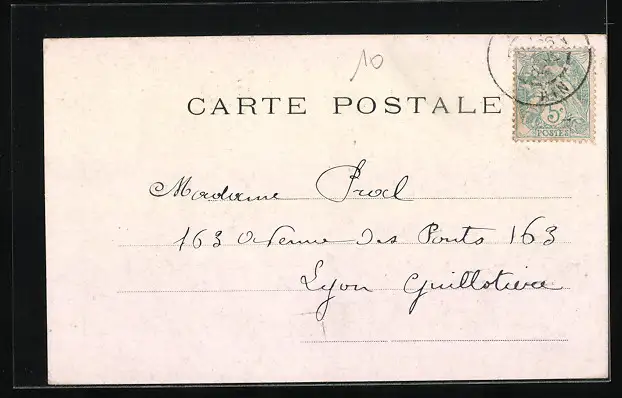 10
CARTE POSTALE
5c
POSTES
AIN
Madame
163 Avenue des Ponts 163
Lyon Guillotière